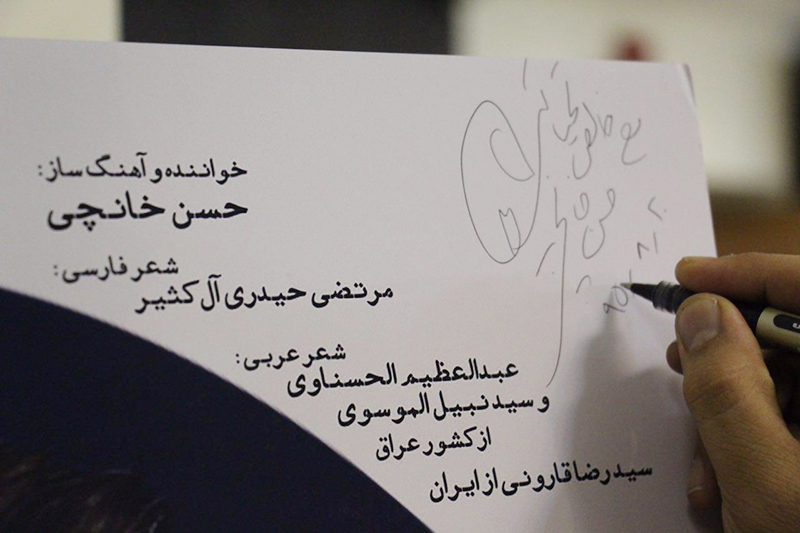 خواننده و آهنگ ساز:
حسن خانچی
شعر فارسی:
مرتضی حیدری آل کثیر
شعر عربی:
عبدالعظیم الحسناوی
و سید نبیل الموسوی
از کشور عراق
سید رضا قارونی از ایران
مع خالص